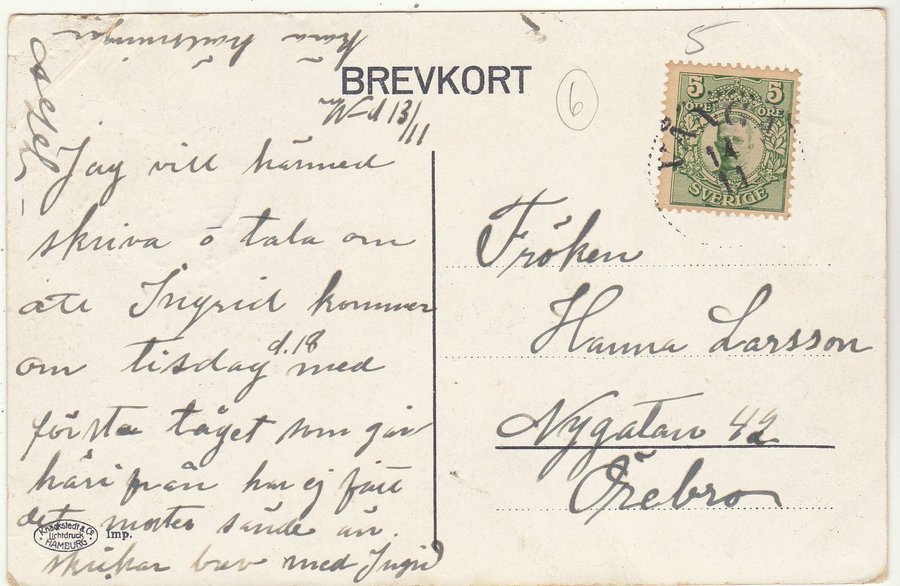 kära hälsningar
BREVKORT
5
6
13/11
Jag vill härmed
skriva o tala om
att Ingrid kommer
om tisdag d. 18 med
första tåget som går
härifrån har ej fått
det moster sände än
skickar brev med Ingrid
Knackstedt & Co.
Lichtdruck
HAMBURG
Imp.
5 5
ÖRE ÖRE
SVERIGE
14
11
Fröken
Hanna Larsson
Nygatan 42
Örebro